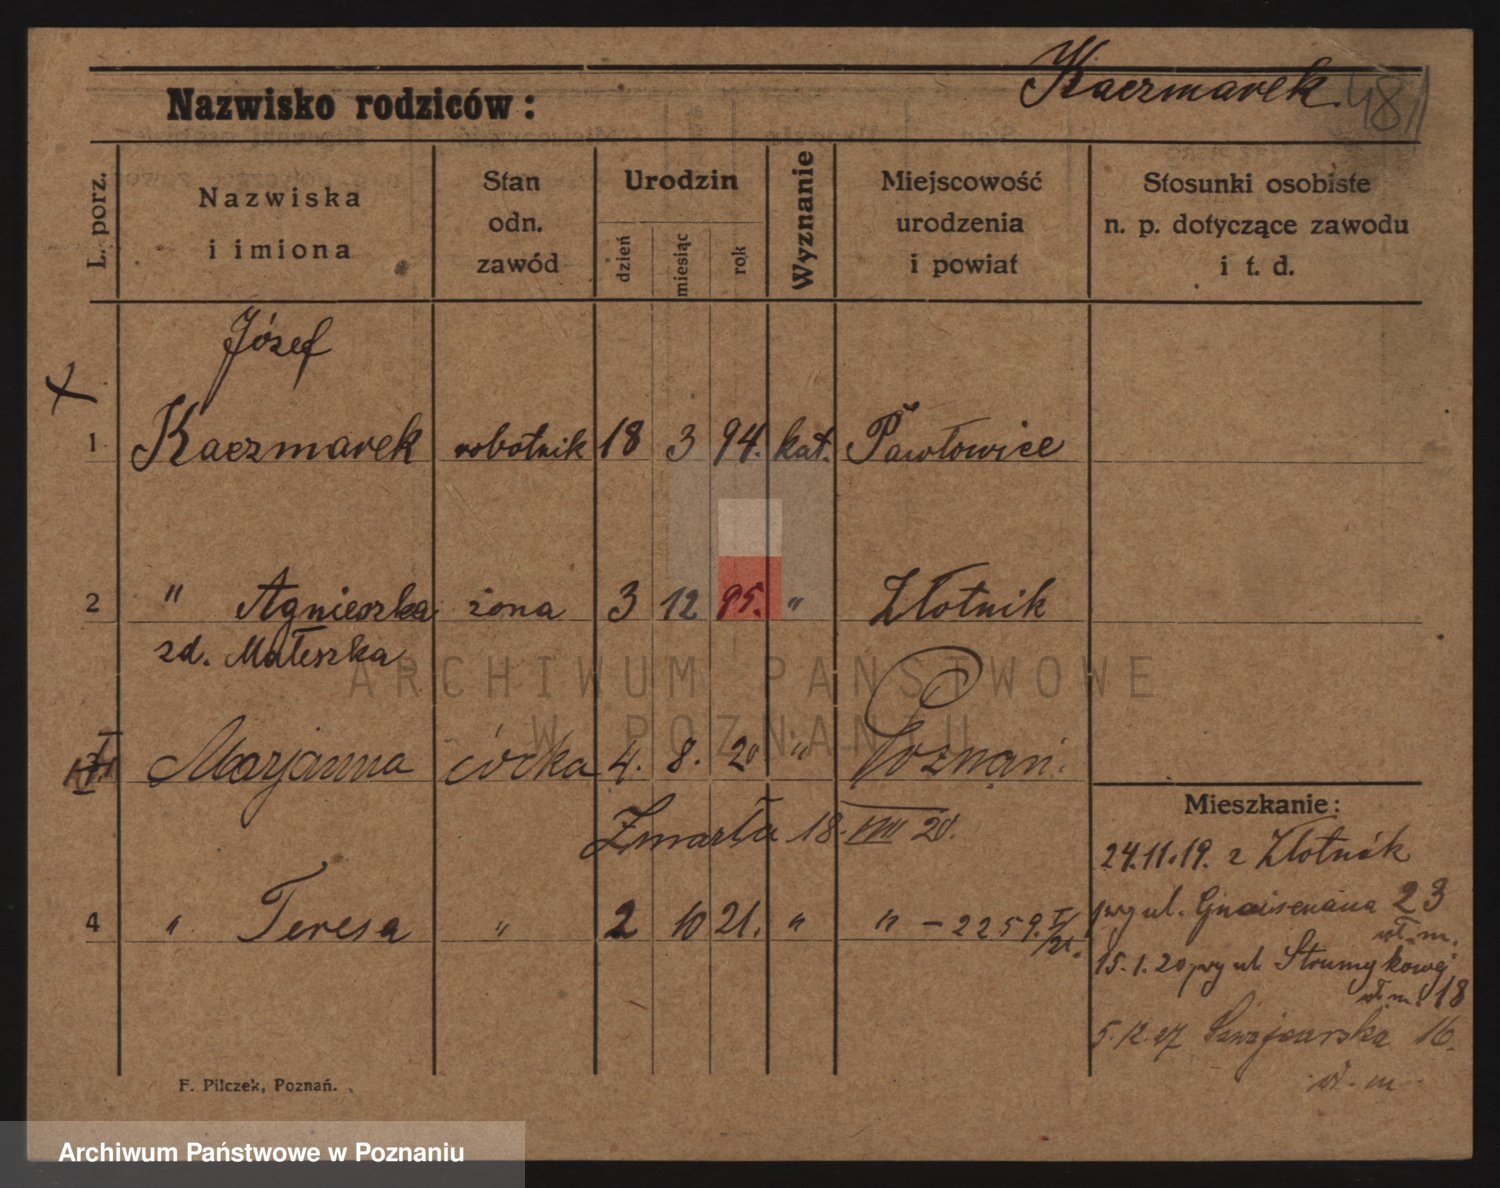 Kaczmarek 48
Nazwisko rodziców:
L. porz.
Nazwiska
i imiona
Stan
odn.
zawód
Urodzin
dzień
miesiąc
rok
Wyznanie
Miejscowość
urodzenia
i powiat
Stosunki osobiste
n. p. dotyczące zawodu
i t. d.
Józef
1 Kaczmarek robotnik 18 3 94. kat. Pawłowice
2 " Agnieszka żona 3 12 95. " Złotnik
zd. Małeszka
Marjanna córka 4. 8. 20 " Poznań.
Zmarła 18. VIII 20.
4 " Teresa " 2 10 21. " " – 2259.
Mieszkanie:
24.11.19. z Złotnik
przy ul. Gnaisenaua 23
wł. m.
15.1.20 przy ul. Strumykowej
wł. m. 18
5.12.27 Szwajcarska 16.
wł. m.
F. Pilczek, Poznań.
ARCHIWUM PAŃSTWOWE
W POZNANIU
Archiwum Państwowe w Poznaniu